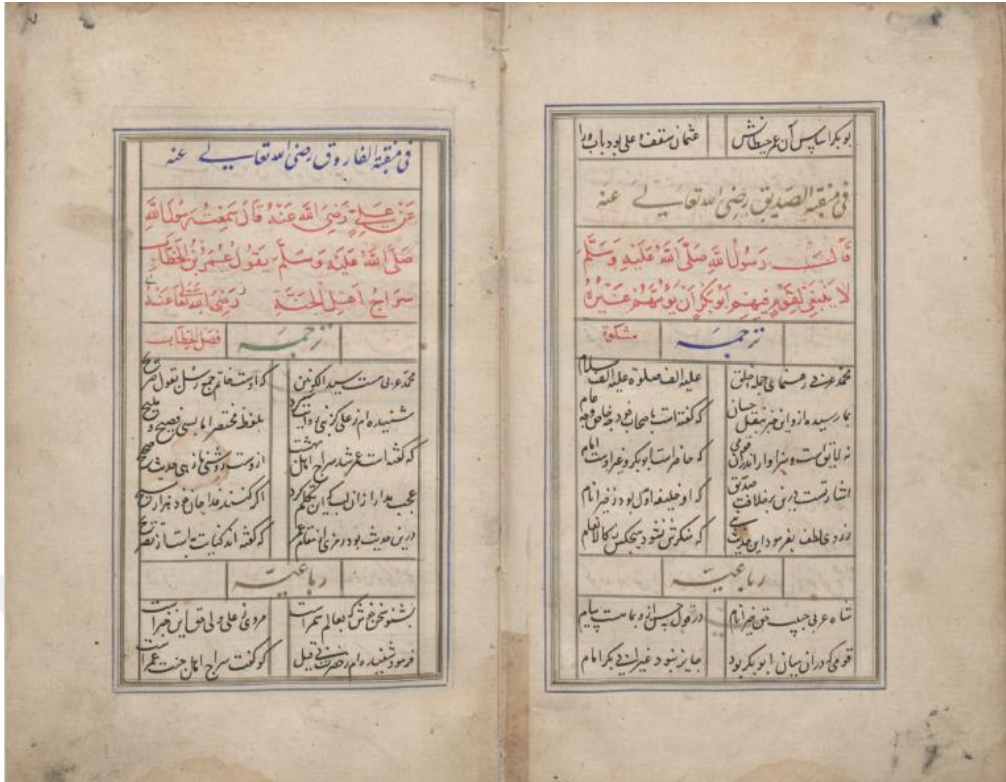 بوبکر اساس آن عمر حیطانش عثمان سقف و علی بود باب ورا
فی منقبة الصدیق رضی الله تعالی عنه
قَالَ رَسُولُ اللهِ صَلَّى اللهُ عَلَيْهِ وَسَلَّمَ
لَا يَنْبَغِي لِقَوْمٍ فِيهِمْ أَبُو بَكْرٍ أَنْ يَؤُمَّهُمْ غَيْرُهُ
ترجمه مشکوة
محمد عربی رهنمای جمله خلق علیه الف صلوة علیه الف سلام
بما رسیده ازو این خبر بنقل حسان که گفته است باصحاب خود چه خاص و چه عام
نه لایق است و سزاوار اندران قومی که حاضر است ابوبکر و غیر اوست امام
اشارتست درین بر خلافت صدیق که او خلیفه اول بود ز خیر انام
بفرمود این حدیث نبی که منکرش نشود هیچکس
رباعیه
شاه عربی حبیب حق خیر انام در قول پیام
قومی که دران میان ابوبکر بود جایز نبود غیر ابی بکر امام
فی منقبة الفاروق رضی الله تعالی عنه
عَنْ عَلِيٍّ رَضِيَ اللهُ عَنْهُ قَالَ سَمِعْتُ رَسُولَ اللهِ
صَلَّى اللهُ عَلَيْهِ وَسَلَّمَ يَقُولُ عُمَرُ بْنُ الْخَطَّابِ
سِرَاجُ أَهْلِ الْجَنَّةِ رَضِيَ اللهُ تَعَالَى عَنْهُ
ترجمه فصل الخطاب
محمد عربی هست سید الکونین که اوست خاتم جمع رسل بقول صریح
شنیده‌ام ز علی کز نبی روایت کرد بلفظ مختصر اما بسی فصیح و ملیح
که گفته است عمر شد سراج اهل بهشت ازوست روشنی ما زهی حدیث صحیح
عجب مدار از ان لب که این تکلم کرد اگر کنند فدا جان خود هزار مسیح
درین حدیث بود رمزی از مقام عمر که گفته‌اند کنایت به است از تصریح
رباعیه
بشنو سخن خوش که بعالم سمر است مروی ز علی ولی حق این خبر است
فرمود شنیده‌ام ز حضرت بی قیل کو گفت سراج اهل جنت عمر است